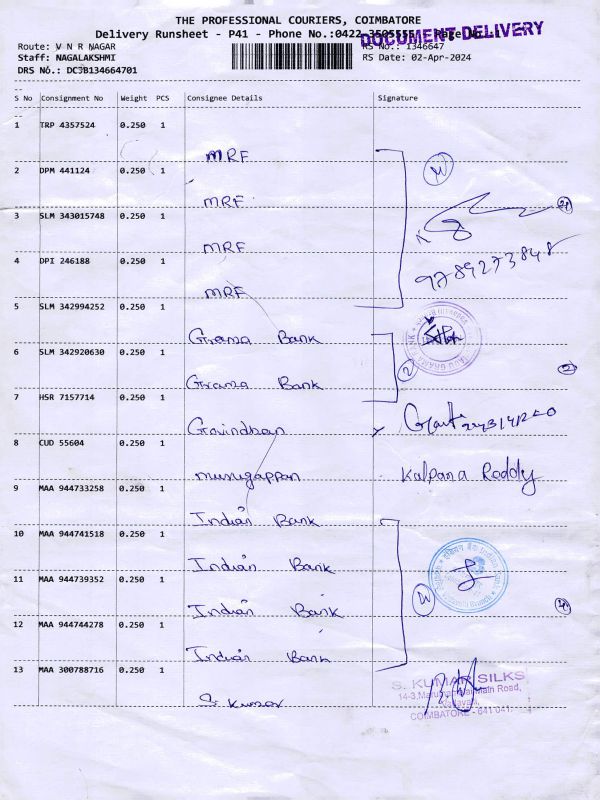 THE PROFESSIONAL COURIERS, COIMBATORE
Delivery Runsheet - P41 - Phone No.:0422-3505555 Page No.:1
DOCUMENT DELIVERY
Route: V N R NAGAR
RS No.: 1346647
Staff: NAGALAKSHMI
RS Date: 02-Apr-2024
DRS No.: DC3B134664701
S No Consignment No Weight PCS Consignee Details Signature
1 TRP 4357524 0.250 1 MRF
2 DPM 441124 0.250 1 MRF
3 SLM 343015748 0.250 1 MRF
9789273848
4 DPI 246188 0.250 1 MRF
5 SLM 342994252 0.250 1 Grama Bank
6 SLM 342920630 0.250 1 Grama Bank
2
7 HSR 7157714 0.250 1 Govindhan
8 CUD 55604 0.250 1 murugappan Kalpana Reddy
9 MAA 944733258 0.250 1 Indian Bank
10 MAA 944741518 0.250 1 Indian Bank
11 MAA 944739352 0.250 1 Indian Bank
12 MAA 944744278 0.250 1 Indian Bank
13 MAA 300788716 0.250 1 S. Kumar
S. KUMAR SILKS
Main Road,
COIMBATORE - 641 041.